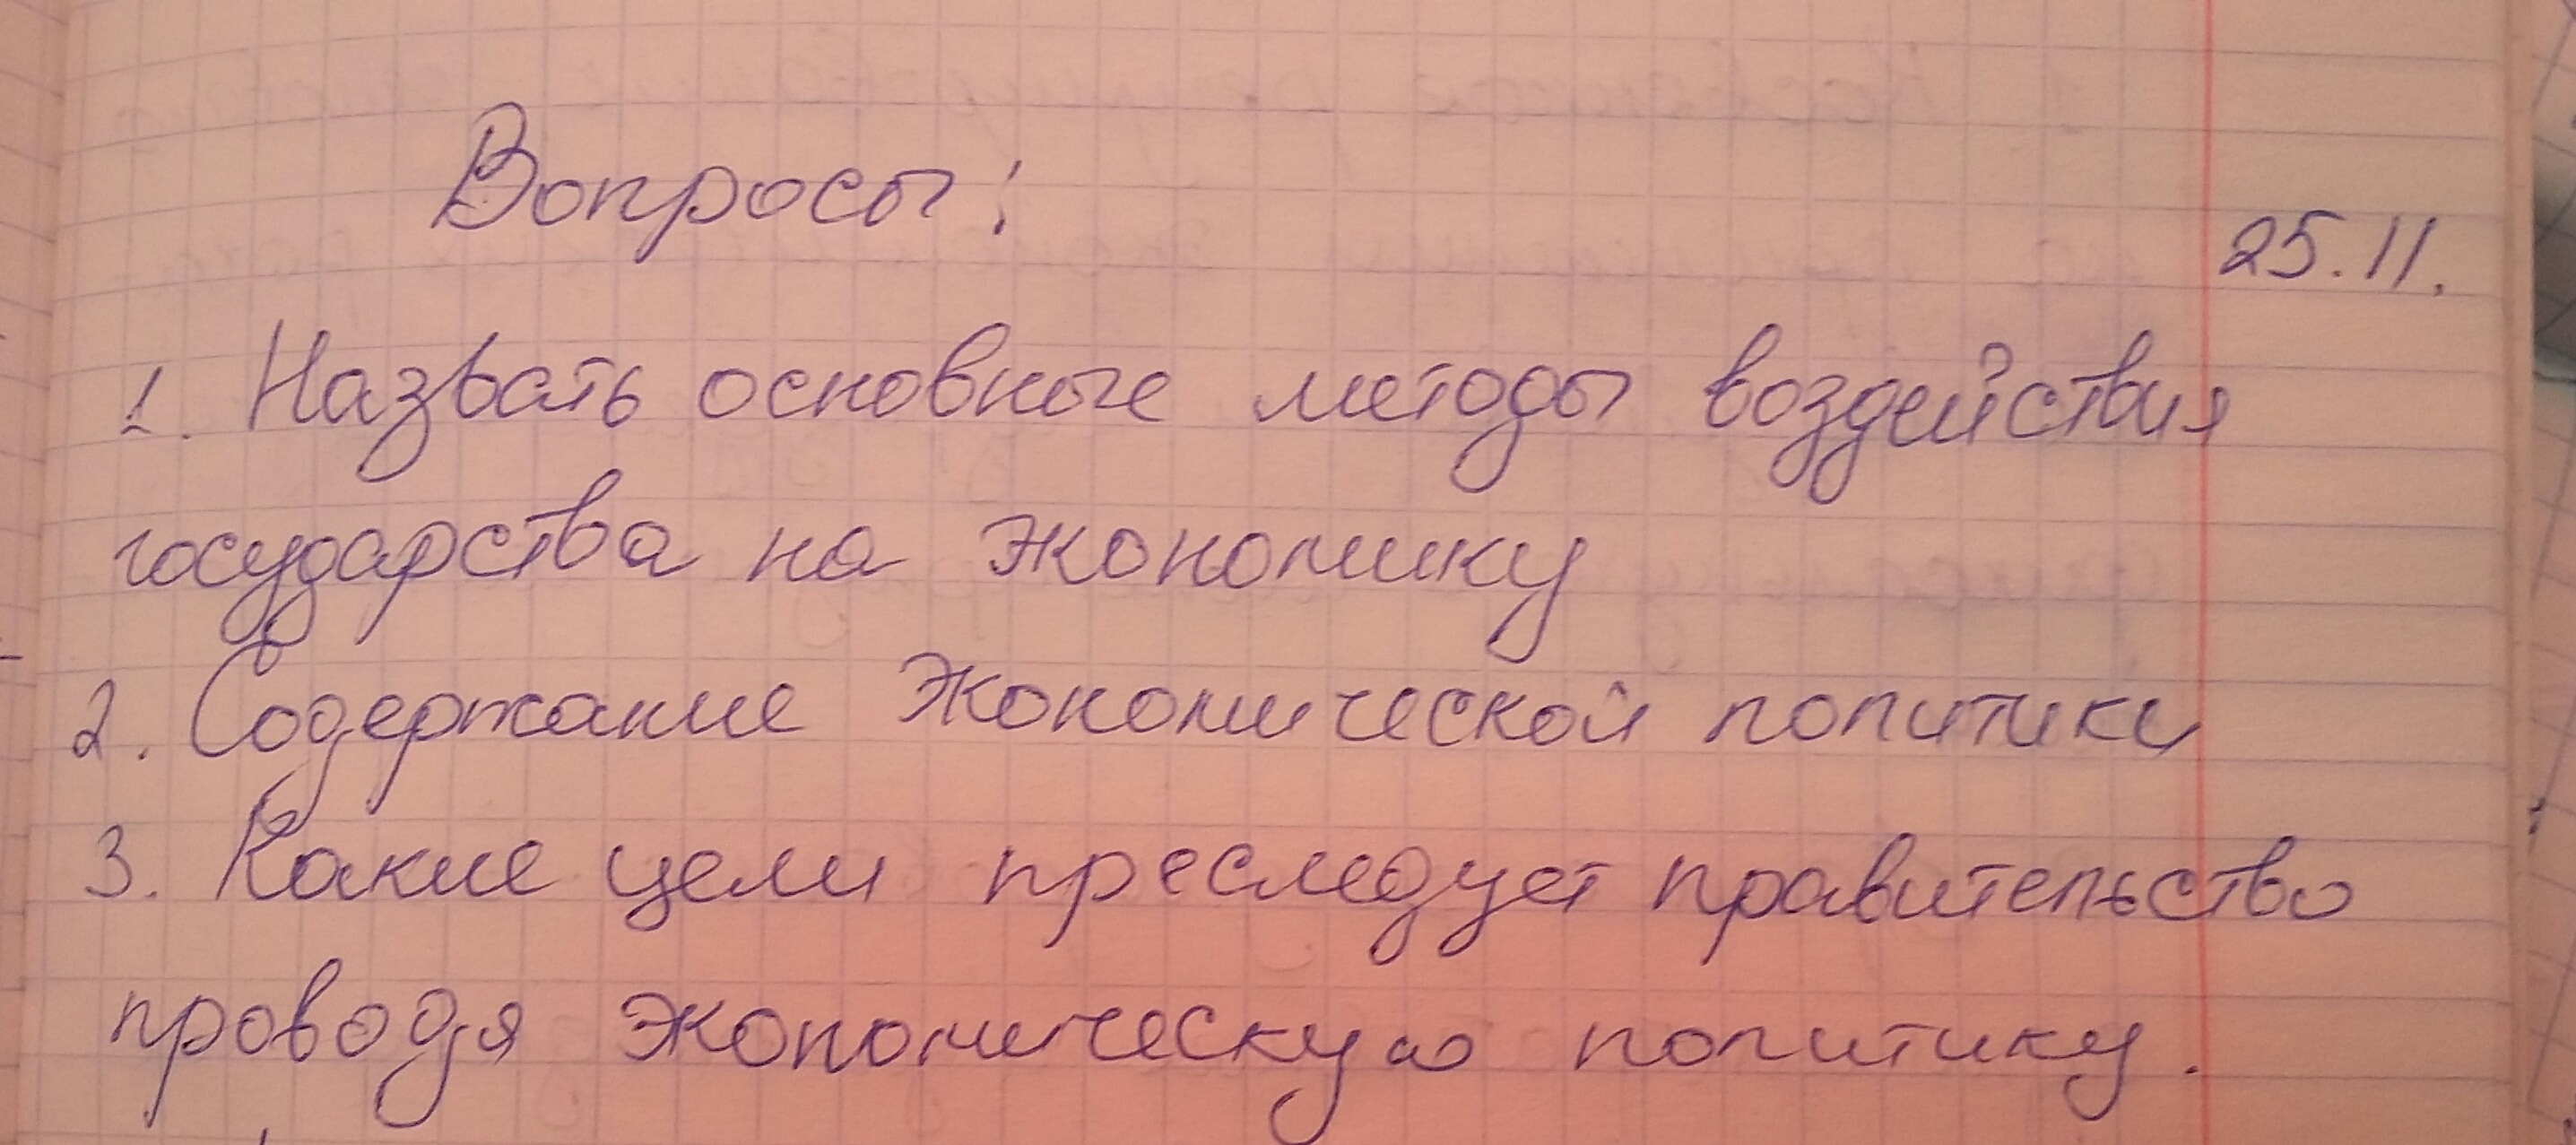 Вопросы:
25.11.
1. Назвать основные методы воздействия
государства на экономику
2. Содержание экономической политики
3. Какие цели преследует правительство
проводя экономическую политику.